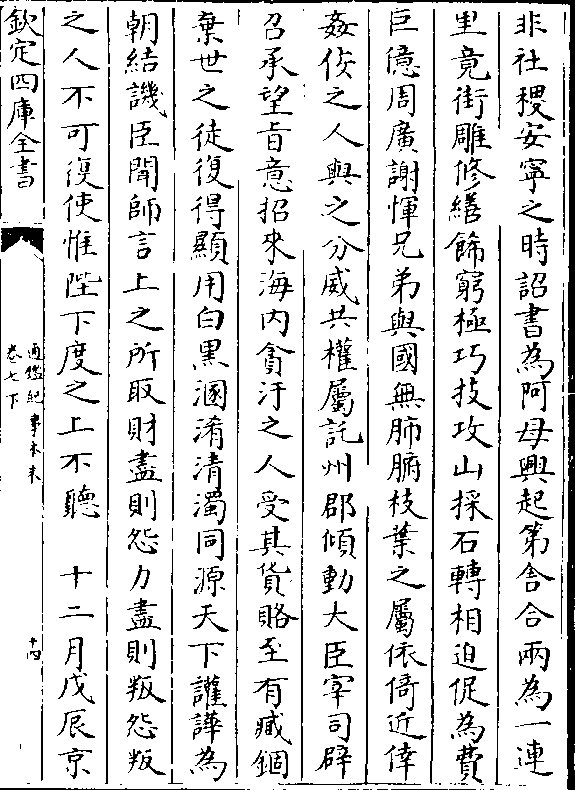 非社稷安寧之時詔書為阿母興起第舎合兩為一連
里竟街雕修繕飾窮極巧技攻山採石轉相迫促為費
巨億周廣謝惲兄弟與國無肺腑枝葉之屬依倚近倖
姦佞之人與之分威共權屬託州郡傾動大臣宰司辟
召承望旨意招來海内貪汙之人受其貨賂至有臧錮
棄世之徒復得顯用白黑溷淆清濁同源天下讙譁為
朝結譏臣聞師言上之所取財盡則怨力盡則叛怨叛
之人不可復使惟陛下度之上不聽　十二月戊辰京
欽定四庫全書
通鑑紀事本末
卷七下
十四